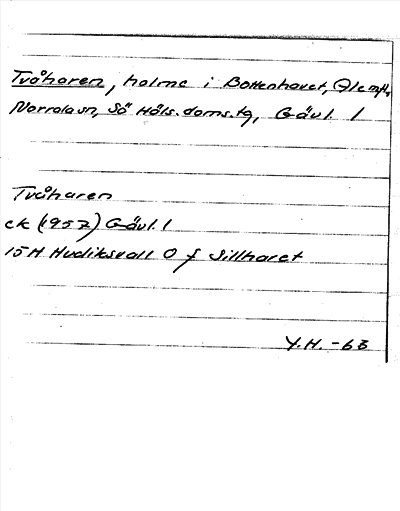 Tvåharen, holme i Bottenhavet,
Norrala sn, Sö Häls. doms.tg, Gävl. l
Tvåharen
ek (1957) Gävl. l
15H Hudiksvall O f Sillharet
Y.H. -63